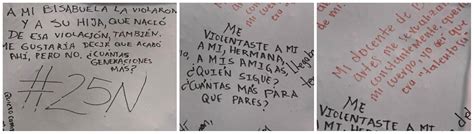 A MI BISABUELA LA VIOLARON
Y A SU HIJA, QUE NACIÓ
DE ESA VIOLACIÓN, TAMBIÉN.
ME GUSTARÍA DECIR QUE ACABÓ
AHI, PERO NO. ¿CUÁNTAS
GENERACIONES
MÁS?
#25N
QUIERO
ME
VIOLENTASTE A MI
A MI, HERMANA,
A MIS AMIGAS,
¿QUIÉN SIGUE?
¿CUÁNTAS MÁS PARA
QUE PARES?
Mi docente de
constantemente
mi cuerpo, no sé qué
ME
VIOLENTASTE A MI
A MI, HERMANA,